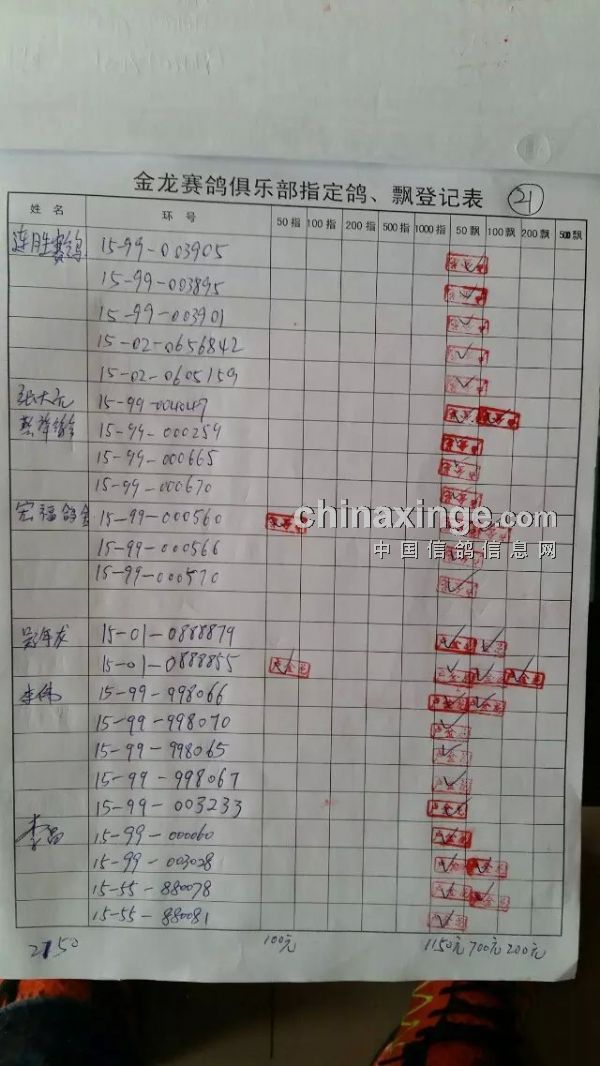 金龙赛鸽俱乐部指定鸽、飘登记表 21
姓名 环号 50指 100指 200指 500指 1000指 50飘 100飘 200飘 500飘
连胜赛鸽 15-99-003905
15-99-003895
15-99-003901
15-02-0656842
15-02-0605159
15-99-004047
15-99-000259
15-99-000665
15-99-000670
宏福鸽舍 15-99-000560
15-99-000566
15-99-000570
chinaxinge.com
中国信鸽信息网
15-01-0888879
15-01-0888855
李伟 15-99-998066
15-99-998070
15-99-998065
15-99-998067
15-99-003233
15-99-000060
15-99-003028
15-55-880078
15-55-880081
2150 100元 1150元 700元 200元